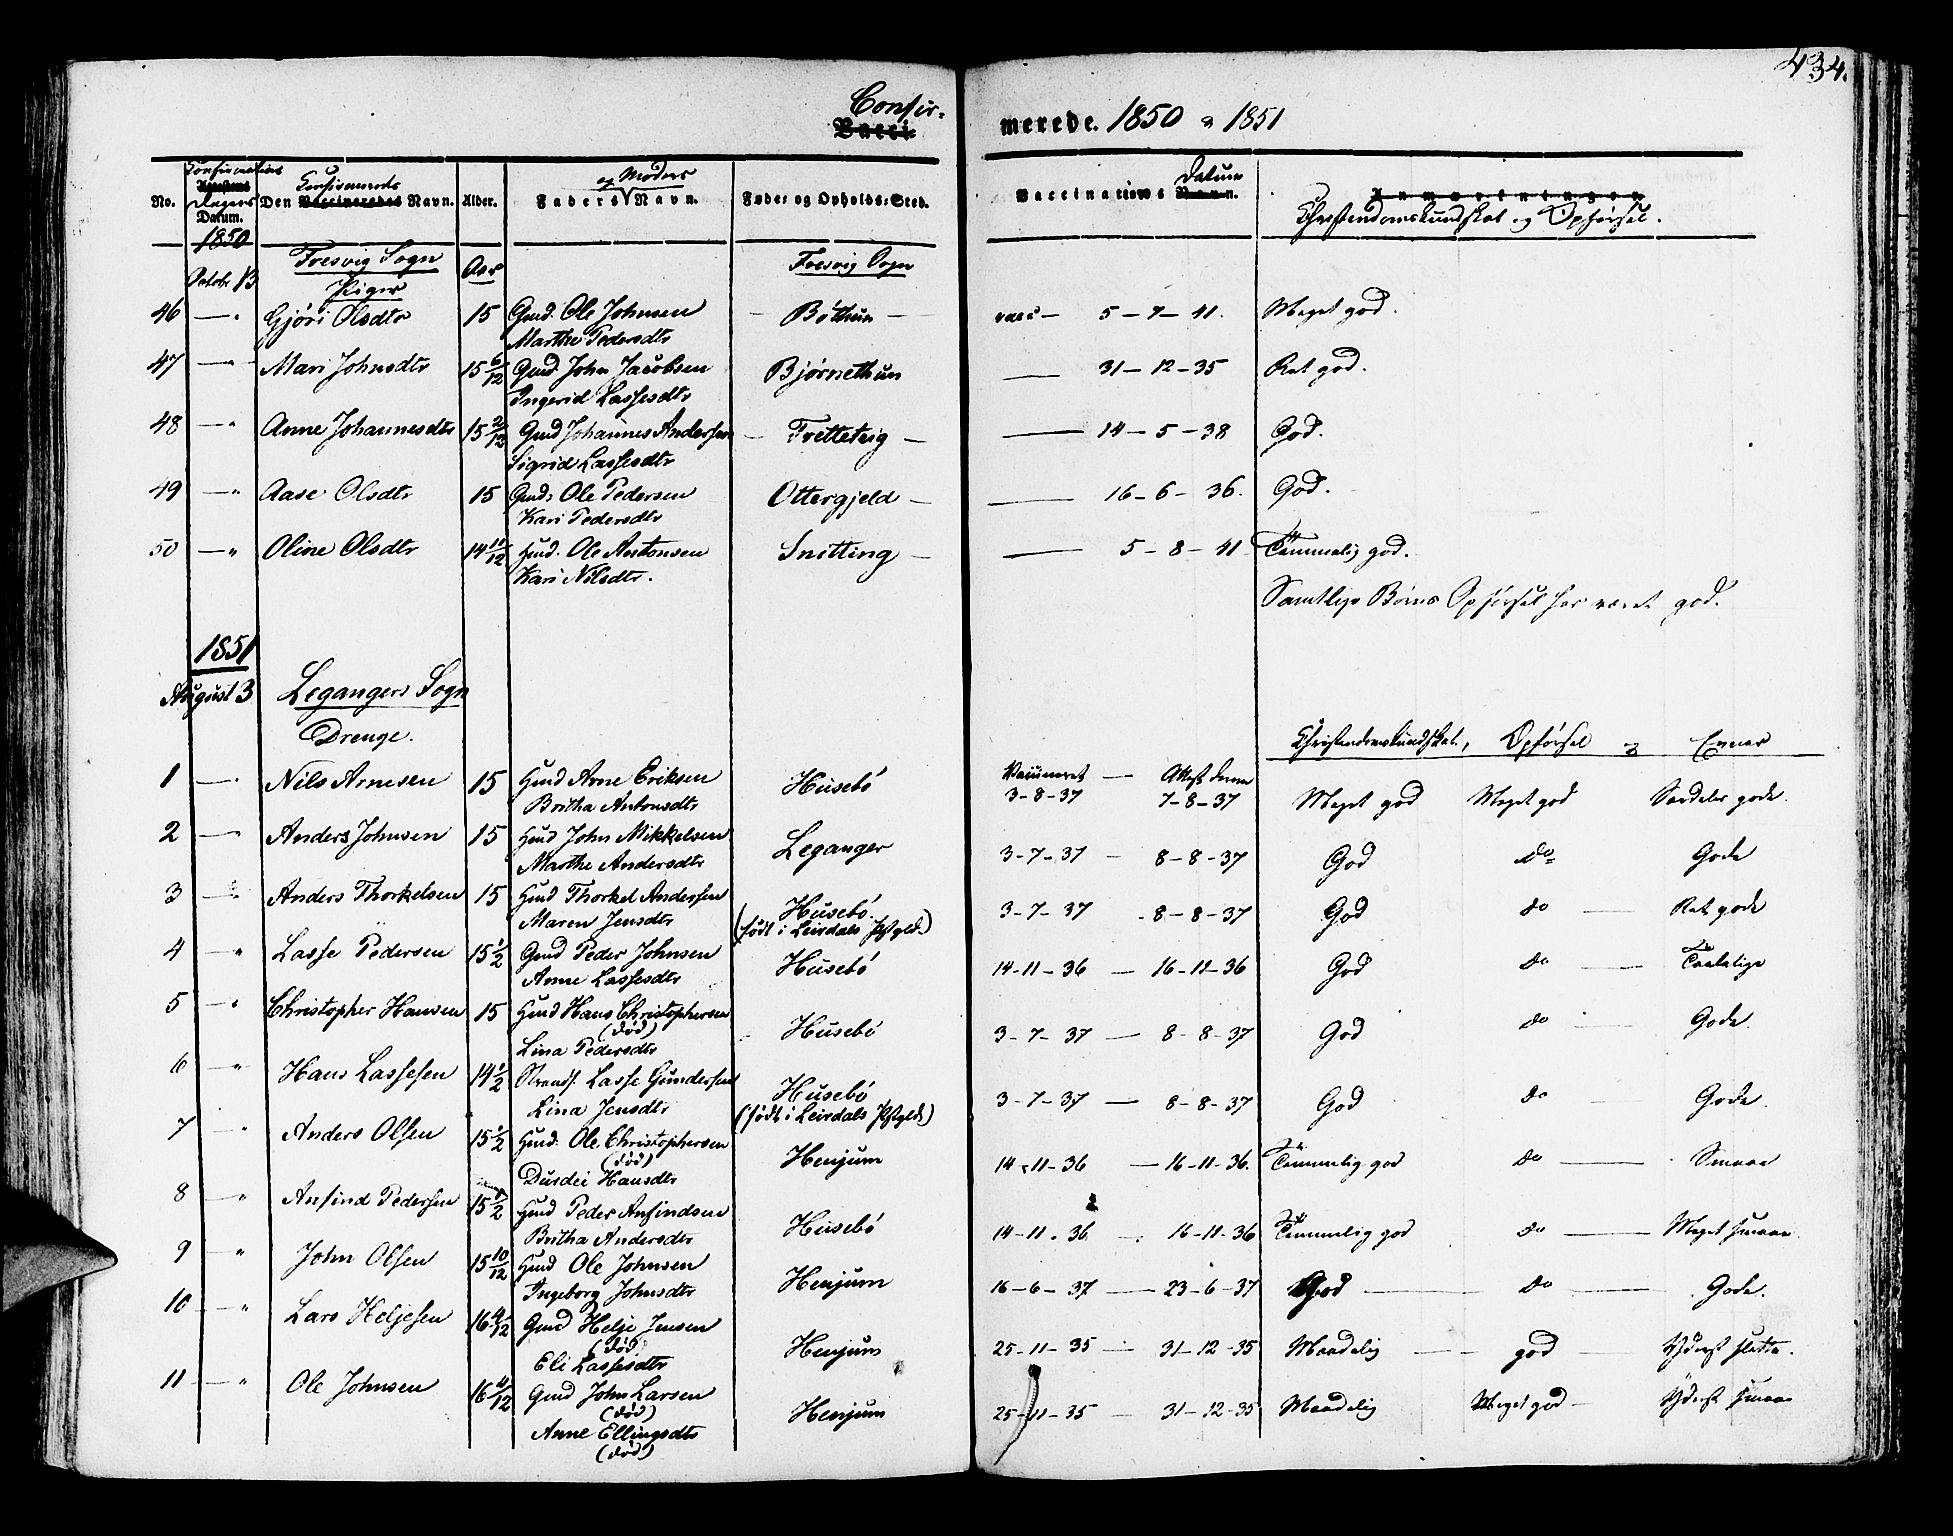 434.
Confir-
Vacci-
merede. 1850 & 1851
Confirmations
og Moders
Datum
No.
Dagens
Datum.
Confirmerede
Den Vaccineredes Navn.
Alder.
Faders Navn.
Føde- og Opholds-Sted.
Vaccinations Navn.
Anmærkninger
Christendomskundskab og Opførsel.
1850
Octobr 13
Fresvig Sogn
Aar
Fresvig Sogn
Piger
46 — " Gjöri Olsdtr 15 Gmd. Ole Johnsen — Böthun — vacc — 5 - 7 - 41. Meget god.
Marthe Pedersdtr
47 — " Mari Johnsdtr 15 6/12 Gmd. John Jacobsen Bjørnethun — 31 - 12 - 35 Ret god.
Ingerid Lassesdtr
48 — " Anne Johannesdtr 15 2/12 Gmd Johannes Andersen — Fretteteig — — 14 - 5 - 38 God.
Sigrid Lassesdtr
49 — " Aase Olsdtr 15 Gmd: Ole Pedersen Ottergjeld — — 16 - 6 - 36. God.
Kari Pedersdtr
50 — " Oline Olsdtr 14 11/12 Hmd. Ole Antonsen Snitting — — 5 - 8 - 41 Temmelig god.
Kari Nilsdtr.
Samtlige Børns Opførsel har været god.
1851
August 3 Leganger Sogn
Drenge.
Christendomskundskab, Opførsel & Evner
1 — " Nils Arnesen 15 Hmd Arne Eriksen Husebö Vaccineret — Attest derom
Britha Antonsdtr 3-8-37 7-8-37 Meget god Meget god Særdeles gode.
2 — " Anders Johnsen 15 Hmd John Mikkelsen Leganger 3-7-37 — 8-8-37 God do Gode
Marthe Andersdtr
3 — " Anders Thorkelsen 15 Hmd Thorkel Andersen Husebö. 3-7-37 - 8-8-37 God do — Ret gode
Maren Jensdtr (født i Leirdals Pstgld.)
4 — " Lasse Pedersen 15 1/2 Gmd Peder Johnsen Husebö 14-11-36 — 16-11-36 God do — Taalelige
Anne Lassesdtr
5 — " Christopher Hansen 15 Hmd Hans Christophersen Husebö 3-7-37 — 8-8-37 God do — Gode.
(död)
Lina Pedersdtr
6 — " Hans Lassesen 14 1/2 Strands. Lasse Gundersen Husebö 3-7-37 — 8-8-37 God do — Gode.
Lina Jensdtr (født i Leirdals Pstgld.)
7 — " Anders Olsen 15 1/2 Hmd. Ole Christophersen Henjum 14-11-36 — 16-11-36. Temmelig god do — Smaae
(död)
Durdei Hansdtr
8 — " Anfind Pedersen 15 1/2 Hmd Peder Anfindsen Husebö 14-11-36 - 16-11-36 Temmelig god do — Meget smaae
Britha Andersdtr
9 — " John Olsen 15 10/12 Hmd Ole Johnsen Henjum 16-6-37 — 23-6-37 God — do — Gode.
Ingeborg Johnsdtr
10 — " Lars Heljesen 16 4/12 Gmd Helje Jensen Henjum 25-11-35 — 31-12-35 Maadelig — god — Yderst slette.
(död)
Eli Lassesdtr
11 — " Ole Johnsen 16 4/12 Gmd John Larsen Henjum 25-11-35 — 31-12-35 Maadelig Meget god — Yderst smaae
(död)
Anne Ellingsdtr
(död)